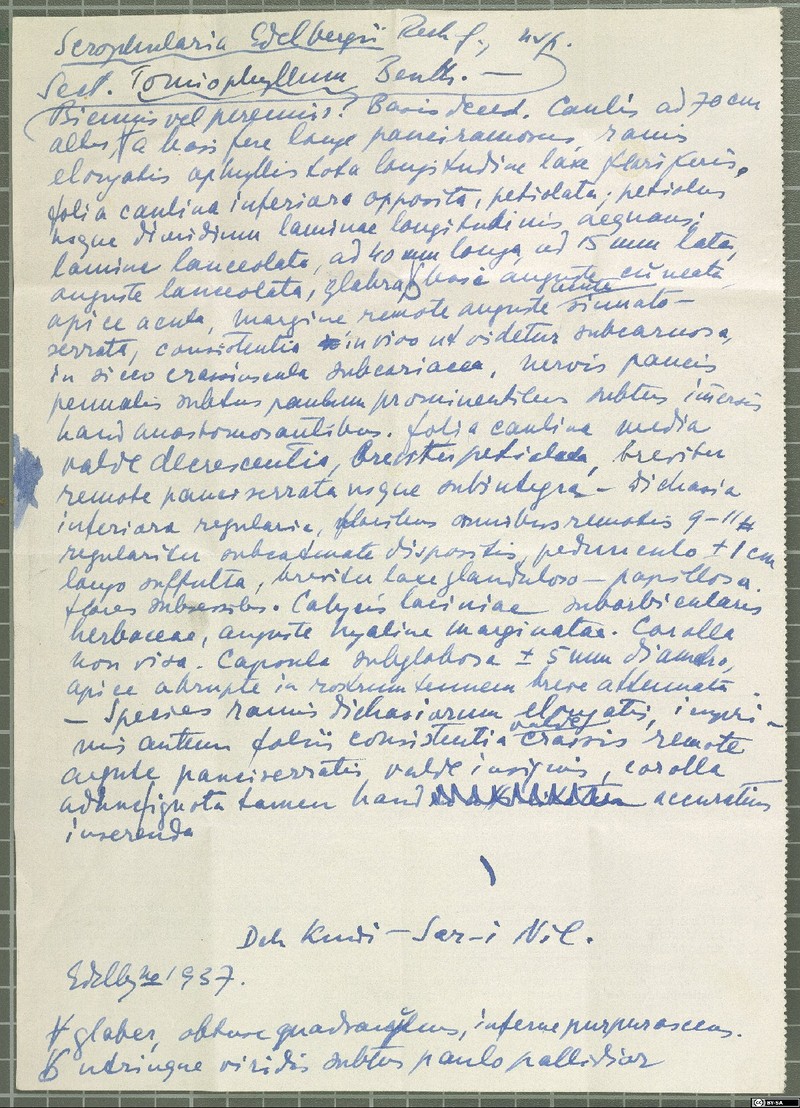 Scrophularia Edelbergii Rech f., n.sp.
Sect. Tomiophyllum Benth. —
Biennis vel perennis? Basis deest. Caulis ad 70 cm
altus, a basi fere longe pauciramosus, ramis
elongatis aphyllis tota longitudine laxe floriferis,
folia caulina inferiora opposita, petiolata; petiolus
usque dimidium laminae longitudinis aequans;
lamina lanceolata, ad 40 mm longa, ad 15 mm lata,
anguste lanceolata, glabra, basi anguste cuneata,
apice acuta, margine remote anguste sinuato-
serrata, consistentia in vivo ut videtur subcarnosa,
in sicco crassiuscula subcoriacea, nervis paucis
pennatis subtus paulum prominentibus subtus
haud anastomosantibus. folia caulina media
valde decrescentia, breviter petiolata, breviter
remote pauciserrata usque subintegra — dichasia
inferiora regularia, floribus omnibus remotis 9-11
regulariter subcatenate dispositis, pedunculo ± 1 cm
longo suffulta, breviter laxe glanduloso-papillosa.
flores subsessiles. Calycis laciniae suborbicularis
herbaceae, anguste hyaline marginatae. Corolla
non visa. Capsula subglobosa ± 5 mm diametro,
apice abrupte in rostrum tenuem breve attenuata.
— Species ramis dichasiorum elongatis, impri-
mis autem foliis consistentia valde crassis remote
argute pauciserratis, valde insignis, corolla
adhuc ignota tamen haud accuratius
inserenda
Deh Kundi — Sar-i Nil.
Edelbg no 1937.
glaber, obtuse quadrangulus, inferne purpurascens.
utrinque viridis subtus paulo pallidior
BY-SA